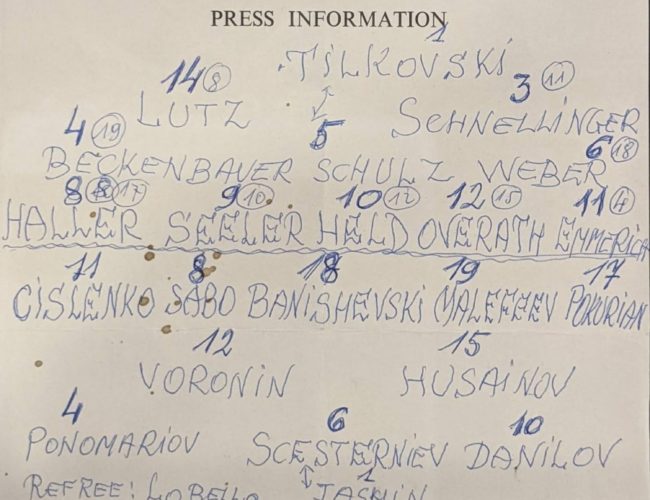 PRESS INFORMATION
1
TILKOVSKI
14 8 3 11
LUTZ SCHNELLINGER
4 19 5 6 18
BECKENBAUER SCHULZ WEBER
8 18 17 9 10 10 12 12 15 11 7
HALLER SEELER HELD OVERATH EMMERICH
11 8 18 19 17
CISLENKO SABO BANISHEVSKI MALEFEEV POKURIAN
12 15
VORONIN HUSAINOV
4 6 10
PONOMARIOV SCESTERNIEV DANILOV
1
REFREE: LOBELLO JASHIN